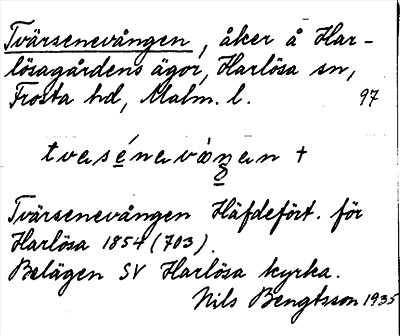 Tvärsenevången, åker å Har-
lösagårdens ägor, Harlösa sn,
Frosta hd, Malm. l. 97
Tvärsenevången Häfdeført. för
Harlösa 1854 (703).
Belägen SV Harlösa kyrka.
Nils Bengtsson 1935